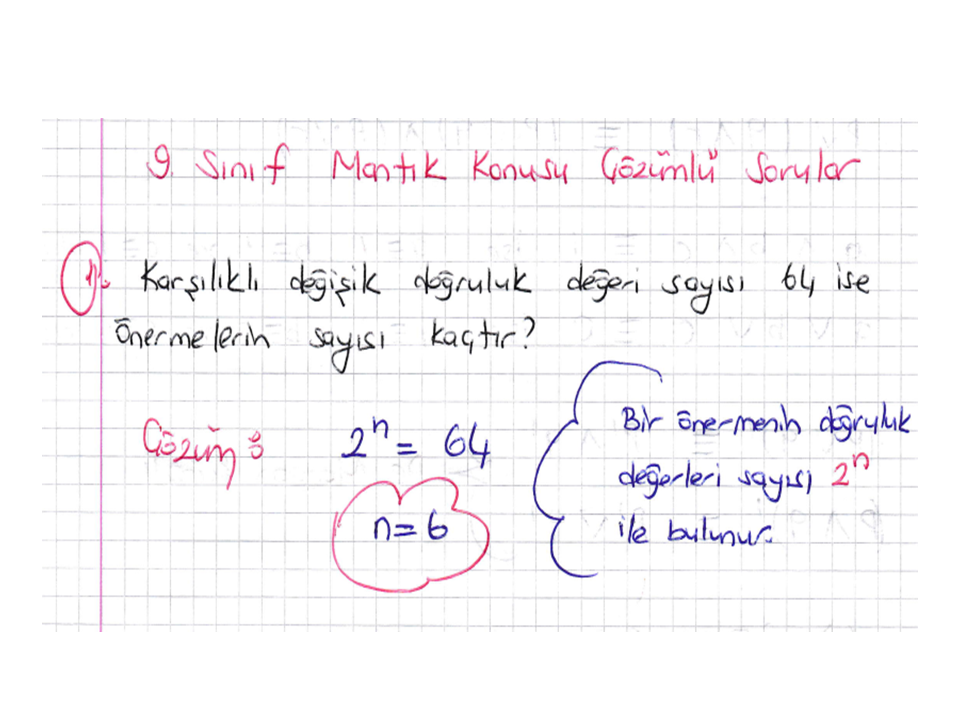 9. Sınıf Mantık Konusu Çözümlü Sorular
1. Karşılıklı değişik doğruluk değeri sayısı 64 ise
önermelerin sayısı kaçtır?
Çözüm:
2ⁿ = 64
n = 6
Bir önermenin doğruluk
değerleri sayısı 2ⁿ
ile bulunur.